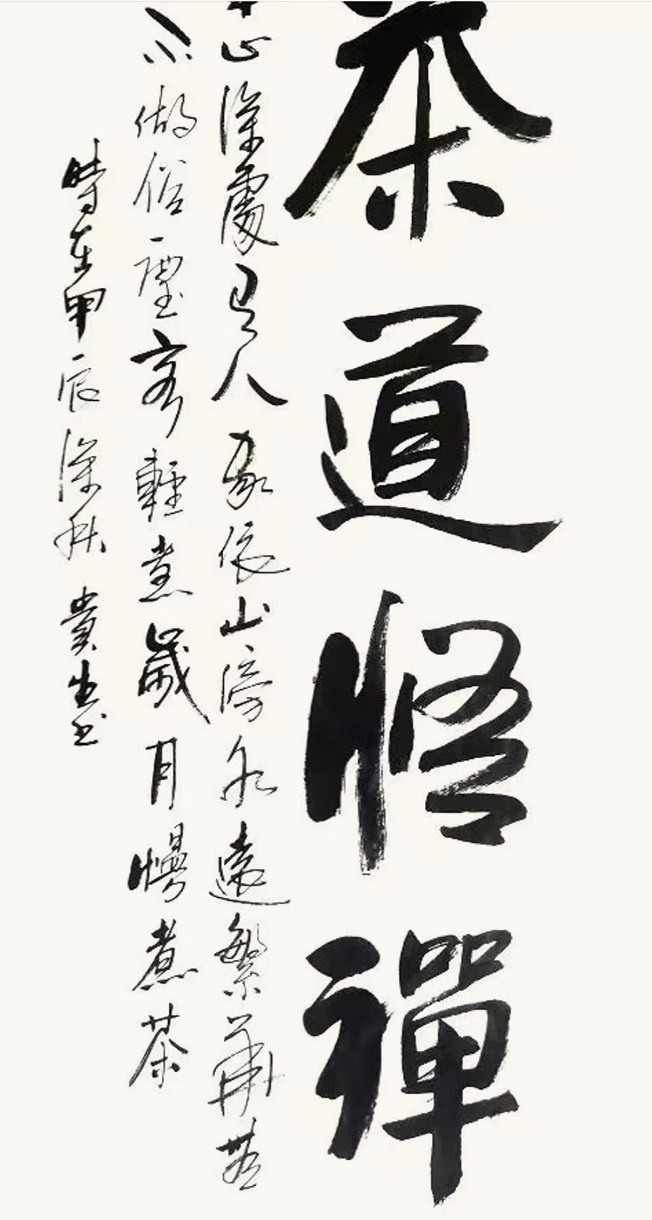 茶道悟禪
深處有人家依山傍水遠繁華
做俗塵客輕煮歲月慢煮茶
時在甲辰深秋貴生書